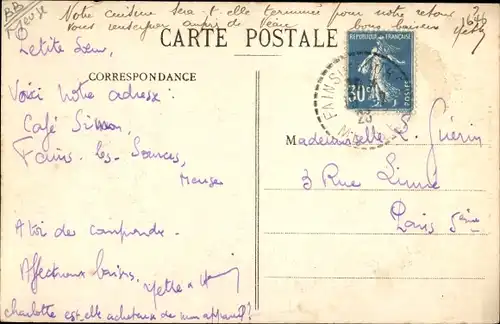 BB
Meuse
Notre cuisine sera t elle terminée pour notre retour
Vous renseigner auprès de Léau bons baisers
1620
Yette
CARTE POSTALE
REPUBLIQUE FRANÇAISE
30c
POSTES
FAINS
CORRESPONDANCE
Petite Soeur,
Voici notre adresse :
Café Simon,
Fains-les-Sources,
Meuse
A toi de comprendre.
Affectueux baisers, Yette
charlotte est-elle acheteuse de mon appareil ?
Mademoiselle S. Guérin
3 Rue Linné
Paris 5ème